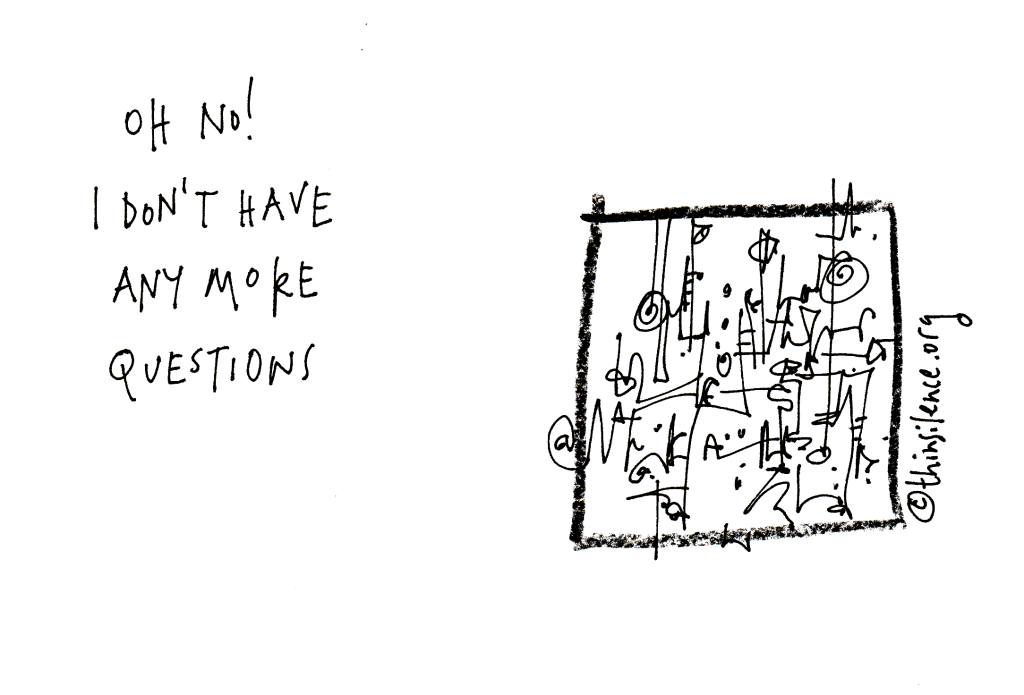 OH NO!
I DON'T HAVE
ANY MORE
QUESTIONS
©thinsilence.org